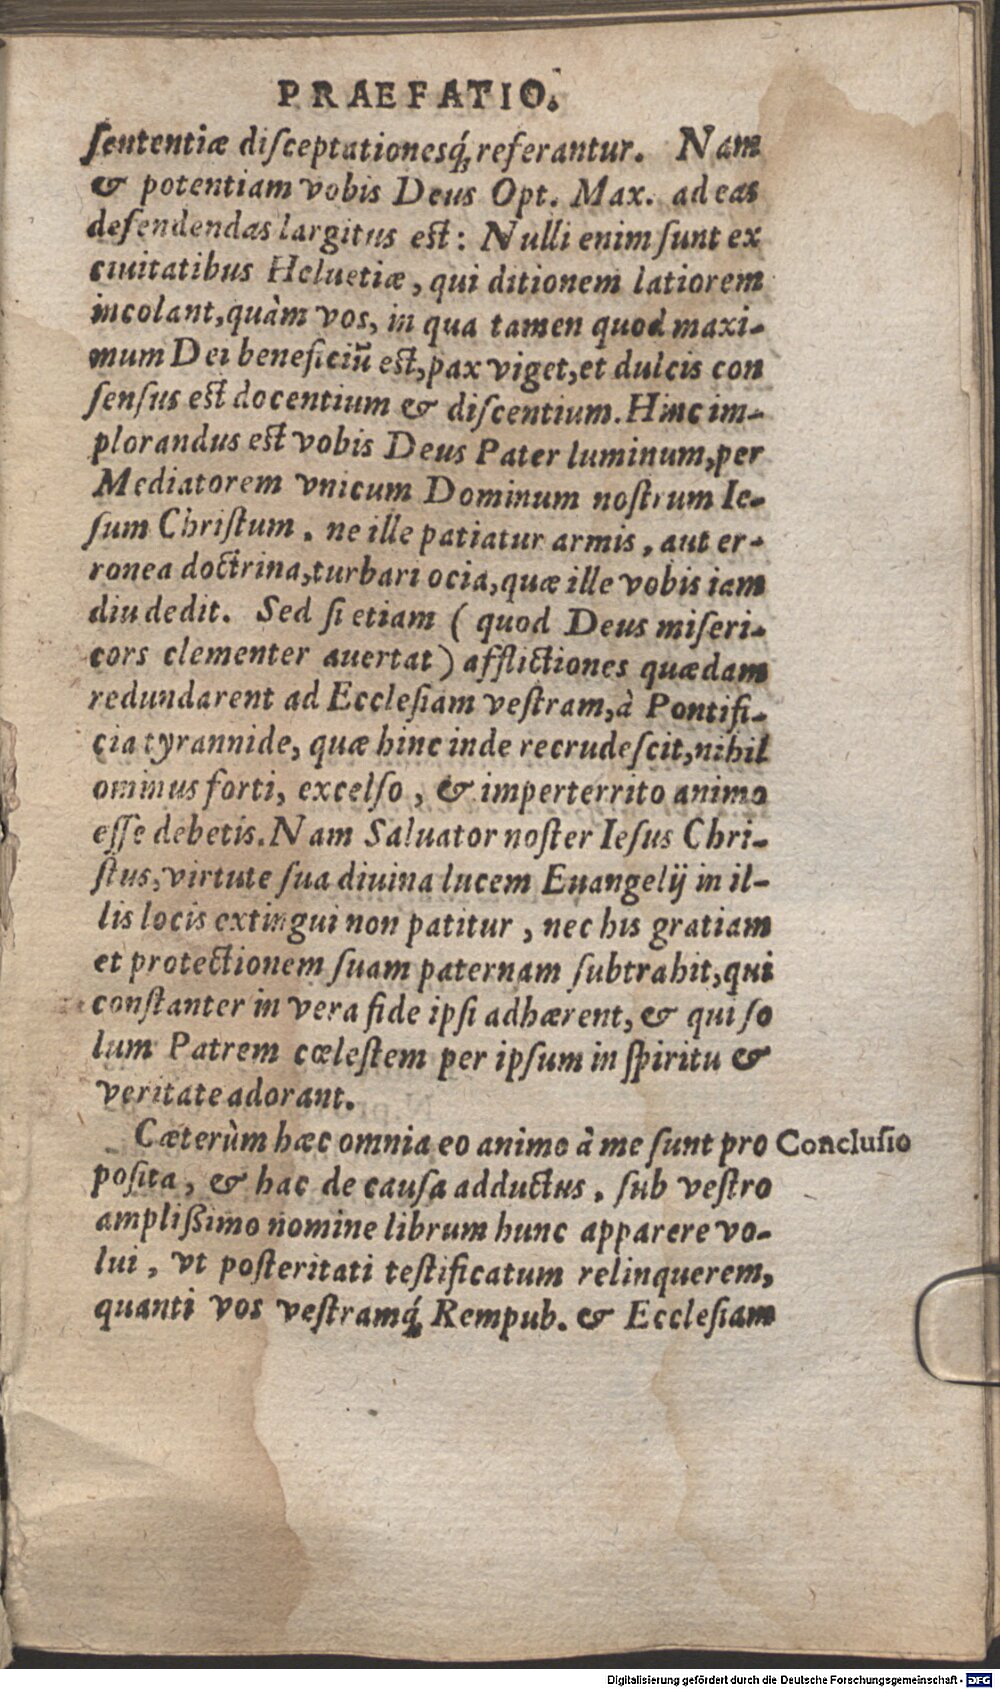 PRAEFATIO.
ſententiæ diſceptationesq́; referantur. Nam
& potentiam vobis Deus Opt. Max. ad eas
defendendas largitus est: Nulli enim ſunt ex
ciuitatibus Heluetiæ, qui ditionem latiorem
incolant, quàm vos, in qua tamen quod maxi-
mum Dei beneficiũ est, pax viget, et dulcis con
ſenſus est docentium & diſcentium. Hinc im-
plorandus est vobis Deus Pater luminum, per
Mediatorem vnicum Dominum noſtrum Ie-
ſum Chriſtum, ne ille patiatur armis, aut er-
ronea doctrina, turbari ocia, quæ ille vobis iam
diu dedit. Sed ſi etiam (quod Deus miſeri-
cors clementer auertat) afflictiones quædam
redundarent ad Eccleſiam veſtram, à Pontifi-
cia tyrannide, quæ hinc inde recrudeſcit, nihil
ominus forti, excelſo, & imperterrito animo
eſſe debetis. Nam Saluator noſter Ieſus Chri-
ſtus, virtute ſua diuina lucem Euangelij in il-
lis locis extingui non patitur, nec his gratiam
et protectionem ſuam paternam ſubtrahit, qui
conſtanter in vera fide ipſi adhærent, & qui ſo
lum Patrem cœleſtem per ipſum in ſpiritu &
veritate adorant.
Cæterùm hæc omnia eo animo à me ſunt pro Concluſio
poſita, & hac de cauſa adductus, ſub veſtro
amplißimo nomine librum hunc apparere vo-
lui, vt poſteritati teſtificatum relinquerem,
quanti vos veſtramq́; Rempub. & Eccleſiam
Digitalisierung gefördert durch die Deutsche Forschungsgemeinschaft - DFG